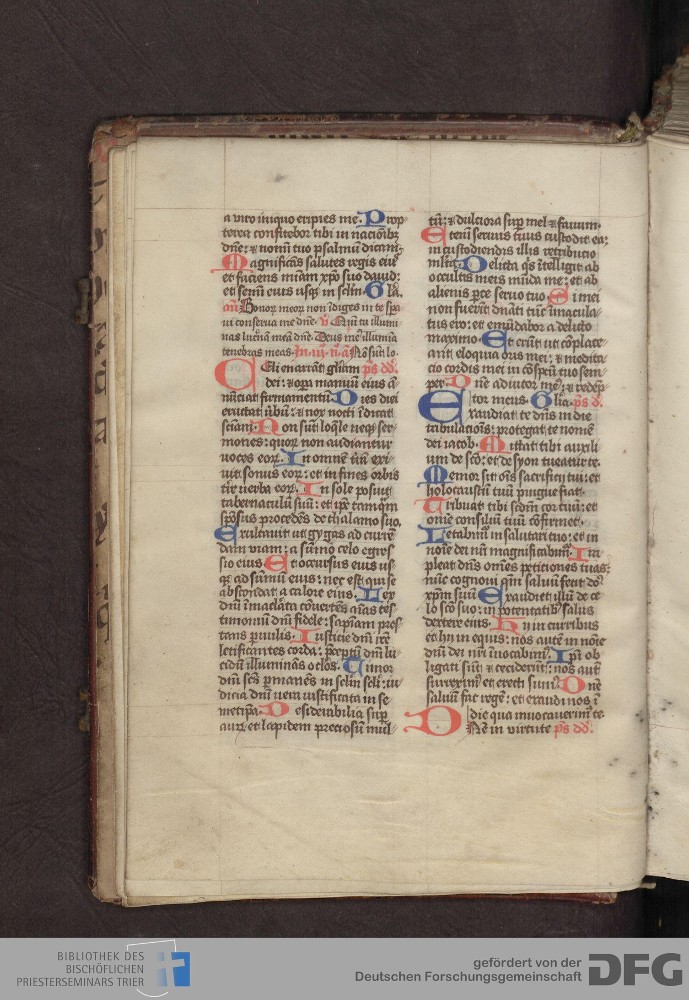 a viro iniquo eripies me. Prop
terea confitebor tibi in nacionibꝫ
dn̄e: et nomī tuo psalmū dicam.
Magnificās salutes regis eiꝰ
et faciens miām xp̄o suo dauid:
et semī eius usqꝫ in sclm̄. Gla.
an̄ Bonoꝝ meoꝝ non īdiges in te spa
ui conserua me dn̄e. v Qm̄ tu illumi
nas lucn̄am meā dn̄e. Deus meꝰ illumīa
tenebras meas. Nō sūt lo
Celi enarrāt gl̄iam ps dd̄.
dei: et opa manuū eius ā
nūciat firmamentū. Dies diei
eructat v̄bū: et nox nocti īdicat
sciam̄. Non sūt loqle neqꝫ ser
mones: quoꝝ non audiantur
voces eoꝝ. In omnē trā exi
uit sonus eoꝝ: et in fines orbis
tr̄e verba eoꝝ. In sole posuit
tabernaculū suū: et ip̄e tamqm̄
spōsus procedēs de thalamo suo.
Exultauit ut gygas ad currē
dam viam: a sūmo celo egres
sio eius. Et occursus eius us
qꝫ ad sūmū eius: nec est qui se
abscondat a calore eius. Lex
dn̄i īmaclata cōuertēs aīas tes
timoniū dn̄i fidele: sapīam pres
tans puulis. Iusticie dn̄i rc̄e
letificantes corda: p̄ceptū dn̄i lu
cidū illuminās oclos. Timor
dn̄i sc̄s pmanēs in sclm̄ scli: iu
dicia dn̄i vera iustificata in se
metip̄a. Desiderabilia sup
auꝝ et lapidem preciosū mul
tū: et dulciora sup mel et fauum.
Etem̄ seruus tuus custodit ea:
in custodiendis illis retributio
mlta. Delicta qs ītelligit ab
occultis meis mūda me: et ab
alienis pce seruo tuo. Si mei
non fuerīt dn̄ati tūc īmacula
tus ero: et emūdabor a delicto
maximo. Et erūt ut cōplace
ant eloquia oris mei: et medita
cio cordis mei in cōspcū tuo sem
per. Dn̄e adiutor meꝰ: et redēp
tor meus. Gl̄ia. ps d.
Exaudiat te dn̄s in die
tribulacionis: protegat te nomē
dei iacob. Mittat tibi auxili
um de sc̄o: et de syon tueatur te.
Memor sit oīs sacrificij tui: et
holocaustū tuū pingue fiat.
Tribuat tibi sc̄dm cor tuū: et
om̄e consiliū tuū cōfirmet.
Letabimꝰ in salutari tuo: et in
noīe dei nr̄i magnificabimꝰ. Im
pleat dn̄s om̄es peticiones tuas:
nūc cognoui qm̄ saluū fecit dō
xp̄m suū. Exaudiet illū de ce
lo sc̄o suo: in potentatibꝫ salus
dextere eius. Hij in curribus
et hij in equis: nos autē in noīe
dn̄i dei nr̄i inuocabimꝰ. Ipī ob
ligati sūt et ceciderūt: nos aut̄
surreximꝰ et erecti sumꝰ. Dn̄e
saluū fac regē: et exaudi nos ī
die qua inuocauerimꝰ te.
Dn̄e in virtute ps dd̄.
BIBLIOTHEK DES
BISCHÖFLICHEN
PRIESTERSEMINARS TRIER
gefördert von der
Deutschen Forschungsgemeinschaft
DFG